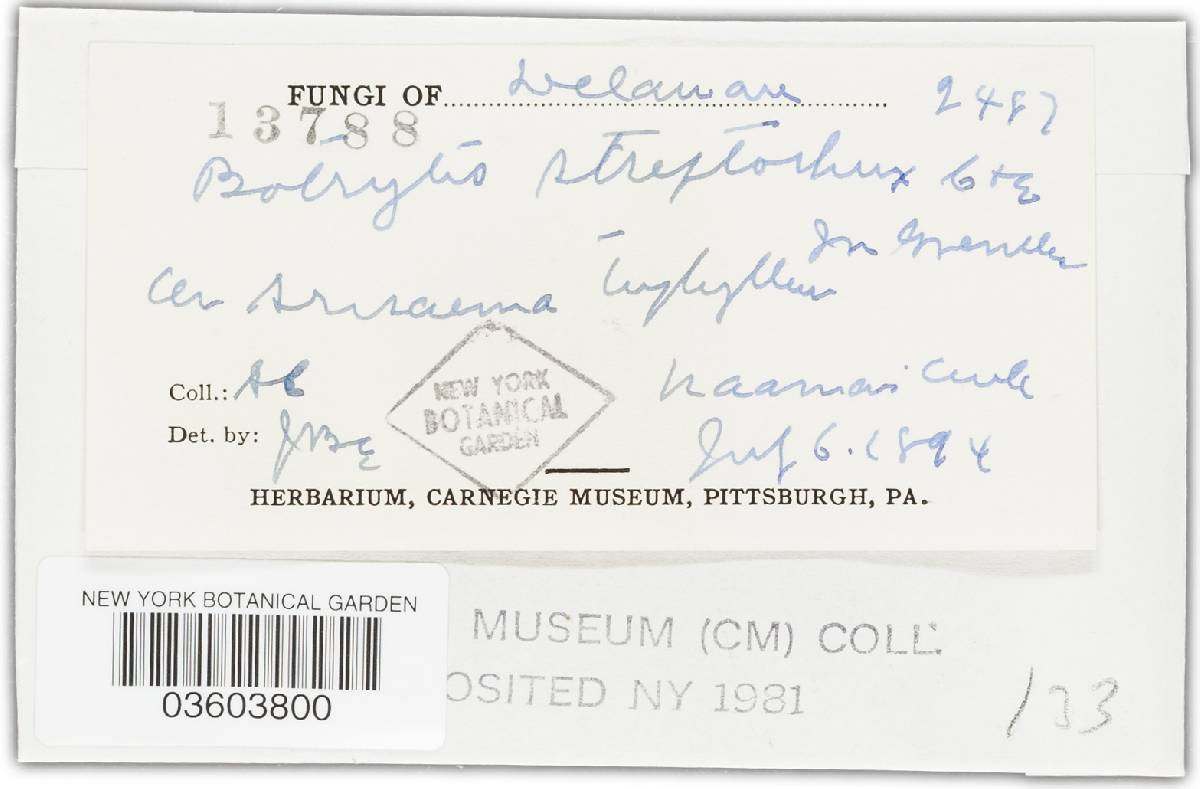 FUNGI OF Delaware 2487
13788
Botrytis streptothrix C+E
In Greenville
on Arisaema triphyllum
Coll.: AC Naaman's Creek
Det. by: JBE July 6. 1894
NEW YORK
BOTANICAL
GARDEN
HERBARIUM, CARNEGIE MUSEUM, PITTSBURGH, PA.
NEW YORK BOTANICAL GARDEN
03603800
MUSEUM (CM) COLL.
OSITED NY 1981
133